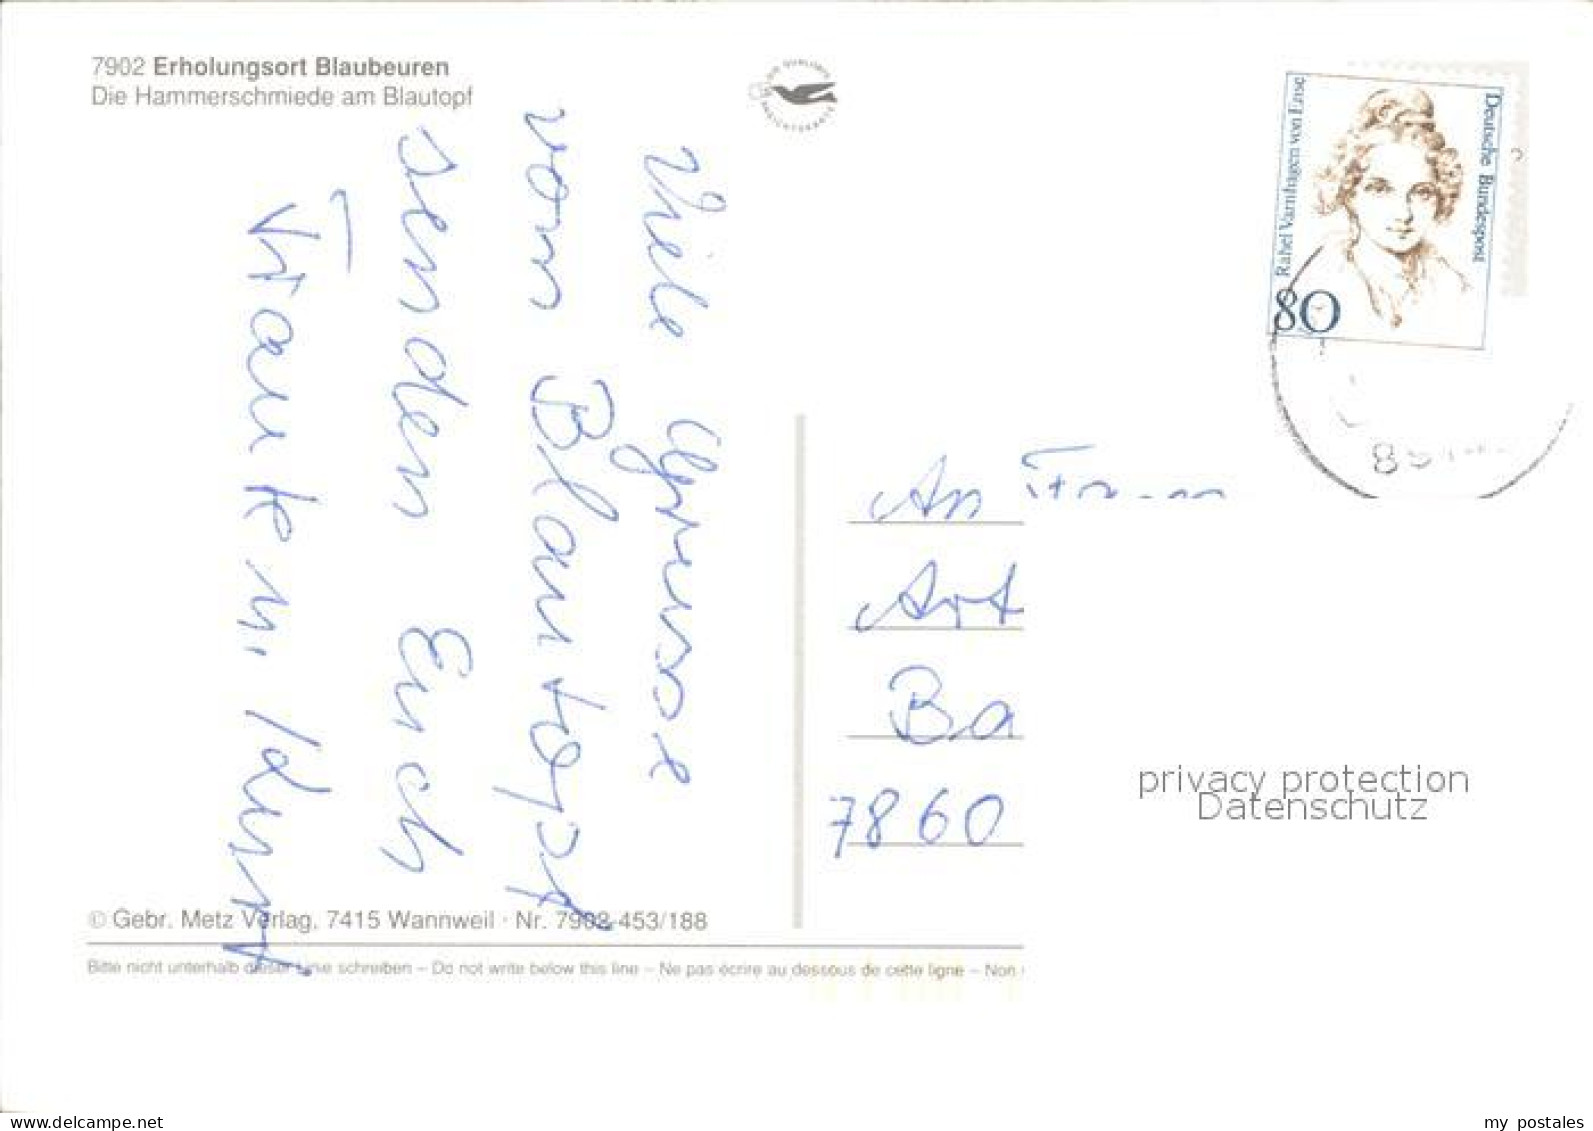 7902 Erholungsort Blaubeuren
Die Hammerschmiede am Blautopf
Viele Grüsse
vom Blautopf
senden Euch
Frauke u. Kurt
Deutsche Bundespost
Rahel Varnhagen von Ense
80
An Frau
Art
Ba
7860
privacy protection
Datenschutz
© Gebr. Metz Verlag, 7415 Wannweil · Nr. 7902-453/188
Bitte nicht unterhalb dieser Linie schreiben – Do not write below this line – Ne pas écrire au dessous de cette ligne – Non
www.delcampe.net
my_postales